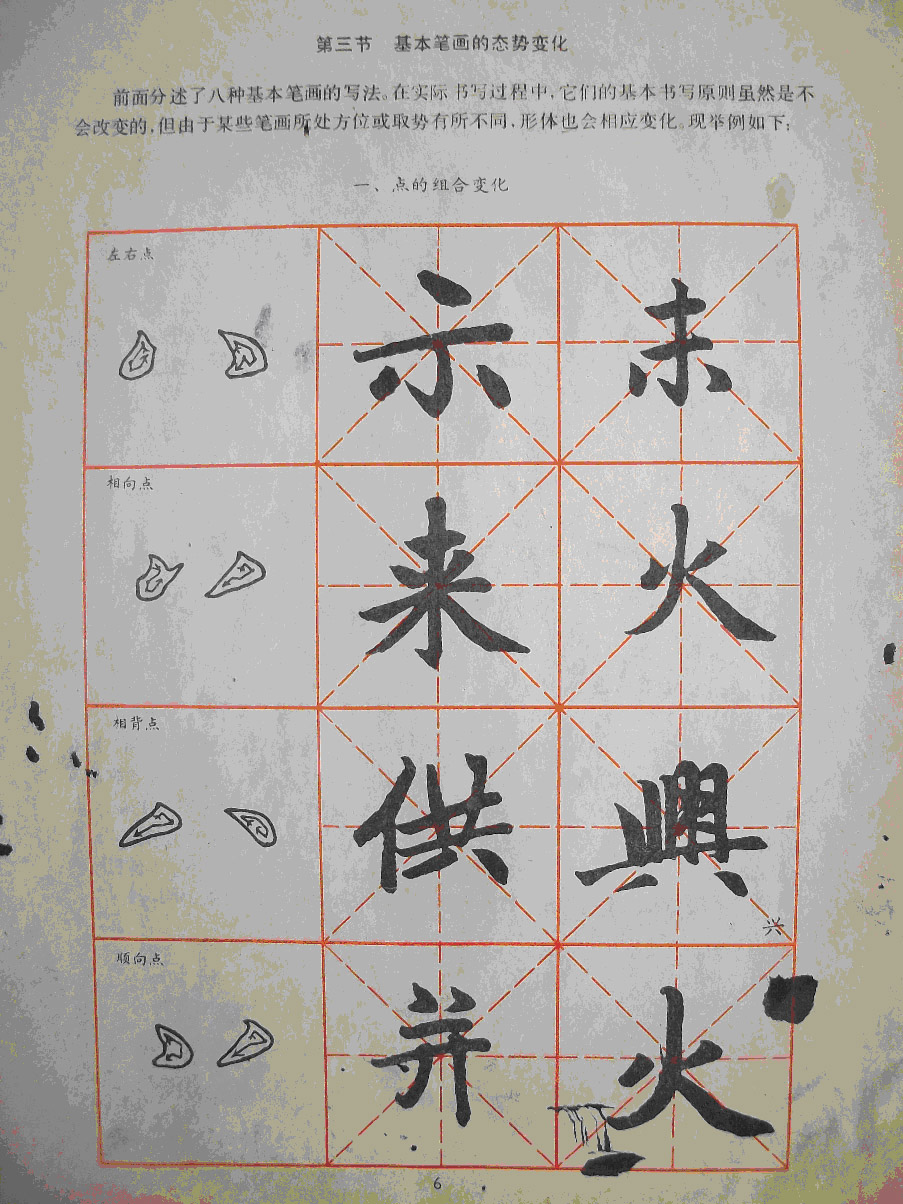 第三节 基本笔画的态势变化
前面分述了八种基本笔画的写法。在实际书写过程中,它们的基本书写原则虽然是不
会改变的,但由于某些笔画所处方位或取势有所不同,形体也会相应变化。现举例如下:
一、点的组合变化
左右点
示 未
相向点
来 火
相背点
供 興
兴
顺向点
并 火
6